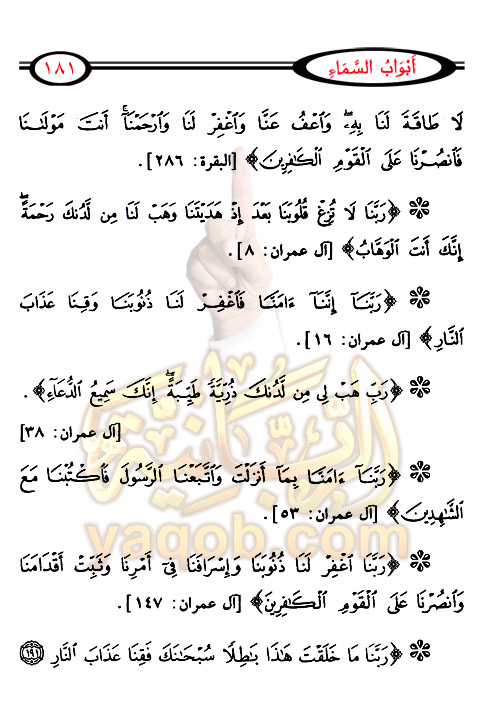 أَبْوَابُ السَّمَاءِ
١٨١
لَا طَاقَةَ لَنَا بِهِۦ ۖ وَٱعْفُ عَنَّا وَٱغْفِرْ لَنَا وَٱرْحَمْنَآ ۚ أَنتَ مَوْلَىٰنَا
فَٱنصُرْنَا عَلَى ٱلْقَوْمِ ٱلْكَٰفِرِينَ﴾ [البقرة: ٢٨٦].
❁ ﴿رَبَّنَا لَا تُزِغْ قُلُوبَنَا بَعْدَ إِذْ هَدَيْتَنَا وَهَبْ لَنَا مِن لَّدُنكَ رَحْمَةً ۖ
إِنَّكَ أَنتَ ٱلْوَهَّابُ﴾ [آل عمران: ٨].
❁ ﴿رَبَّنَآ إِنَّنَآ ءَامَنَّا فَٱغْفِرْ لَنَا ذُنُوبَنَا وَقِنَا عَذَابَ
ٱلنَّارِ﴾ [آل عمران: ١٦].
❁ ﴿رَبِّ هَبْ لِى مِن لَّدُنكَ ذُرِّيَّةً طَيِّبَةً ۖ إِنَّكَ سَمِيعُ ٱلدُّعَآءِ﴾.
[آل عمران: ٣٨]
❁ ﴿رَبَّنَآ ءَامَنَّا بِمَآ أَنزَلْتَ وَٱتَّبَعْنَا ٱلرَّسُولَ فَٱكْتُبْنَا مَعَ
ٱلشَّٰهِدِينَ﴾ [آل عمران: ٥٣].
❁ ﴿رَبَّنَا ٱغْفِرْ لَنَا ذُنُوبَنَا وَإِسْرَافَنَا فِىٓ أَمْرِنَا وَثَبِّتْ أَقْدَامَنَا
وَٱنصُرْنَا عَلَى ٱلْقَوْمِ ٱلْكَٰفِرِينَ﴾ [آل عمران: ١٤٧].
❁ ﴿رَبَّنَا مَا خَلَقْتَ هَٰذَا بَٰطِلًا سُبْحَٰنَكَ فَقِنَا عَذَابَ ٱلنَّارِ ١٩١
الربانية
yaqob.com